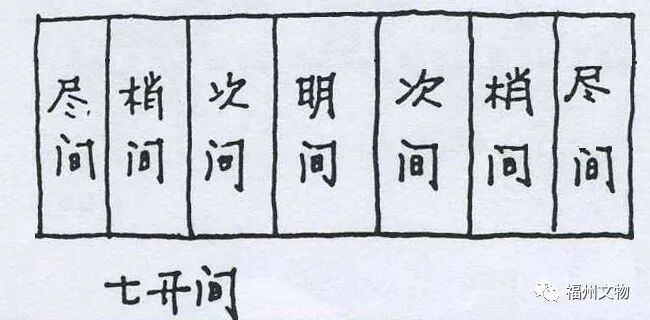 尽间 梢间 次间 明间 次间 梢间 尽间
七开间
福州文物